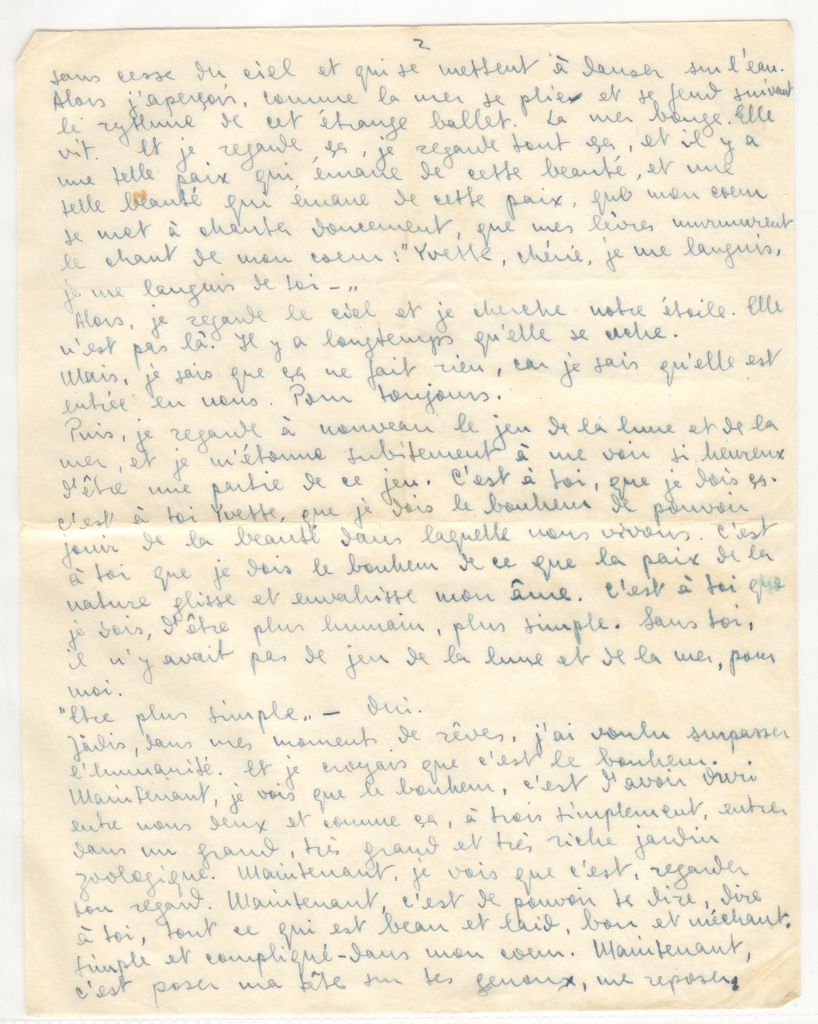 2
sans cesse du ciel et qui se mettent à danser sur l'eau.
Alors j'aperçois, comme la mer se plie et se fend suivant
le rytme de cet étrange ballet. La mer bouge. Elle
vit. Et je regarde ça, je regarde tout ça, et il y a
une telle paix qui émane de cette beauté, et une
telle beauté qui émane de cette paix, que mon coeur
se met à chanter doucement, que mes lèvres murmurent
le chant de mon coeur: "Yvette, chérie, je me languis,
je me languis de toi —„
Alors, je regarde le ciel et je cherche notre étoile. Elle
n'est pas là. Il y a longtemps qu'elle se cache.
Mais, je sais que ça ne fait rien, car je sais qu'elle est
entrée en nous. Pour toujours.
Puis, je regarde à nouveau le jeu de la lune et de la
mer, et je m'étonne subitement à me voir si heureux
d'être une partie de ce jeu. C'est à toi, que je dois ça.
C'est à toi Yvette, que je dois le bonheur de pouvoir
jouir de la beauté dans laquelle nous vivons. C'est
à toi que je dois le bonheur de ce que la paix de la
nature glisse et envahisse mon âme. C'est à toi que
je dois, d'être plus humain, plus simple. Sans toi,
il n'y avait pas de jeu de la lune et de la mer, pour
moi.
"Etre plus simple„ — Oui.
Jâdis, dans mes moments de rêves, j'ai voulu surpasser
l'humanité. Et je croyais que c'est le bonheur.
Maintenant, je vois que le bonheur, c'est d'avoir
entre nous deux et comme ça, à trois simplement, entrer
dans un grand, très grand et très riche jardin
zoologique. Maintenant, je vois que c'est, regarder
ton regard. Maintenant, c'est de pouvoir te dire, dire
à toi, tout ce qui est beau et laid, bon et méchant.
simple et compliqué - dans mon coeur. Maintenant,
c'est poser ma tête sur tes genoux, me reposer,